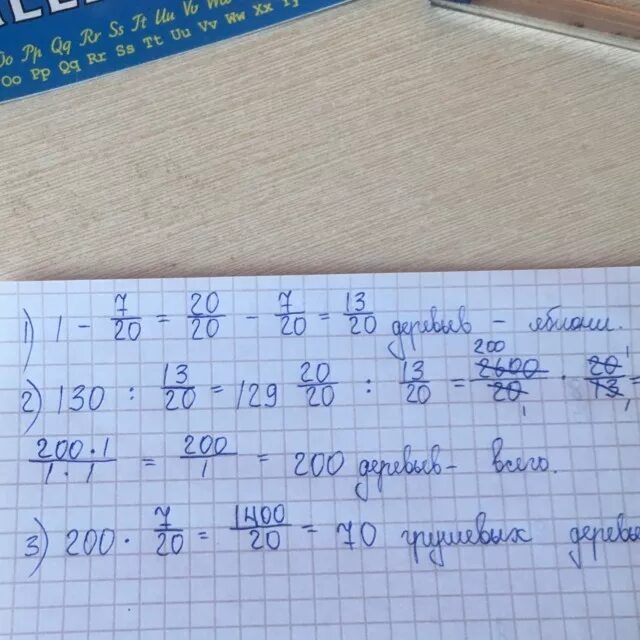 Oo Pp Qq Rr Ss Tt Uu Vv Ww Xx
Oo Pp Qq Rr Ss Tt Uu Vv Ww Xx Yy
1) 1 - 7/20 = 20/20 - 7/20 = 13/20 деревьев - яблони.
2) 130 : 13/20 = 129 20/20 : 13/20 = 2600/20 · 20/13 =
200 1
1 1
200·1/1·1 = 200/1 = 200 деревьев - всего.
3) 200 · 7/20 = 1400/20 = 70 грушевых